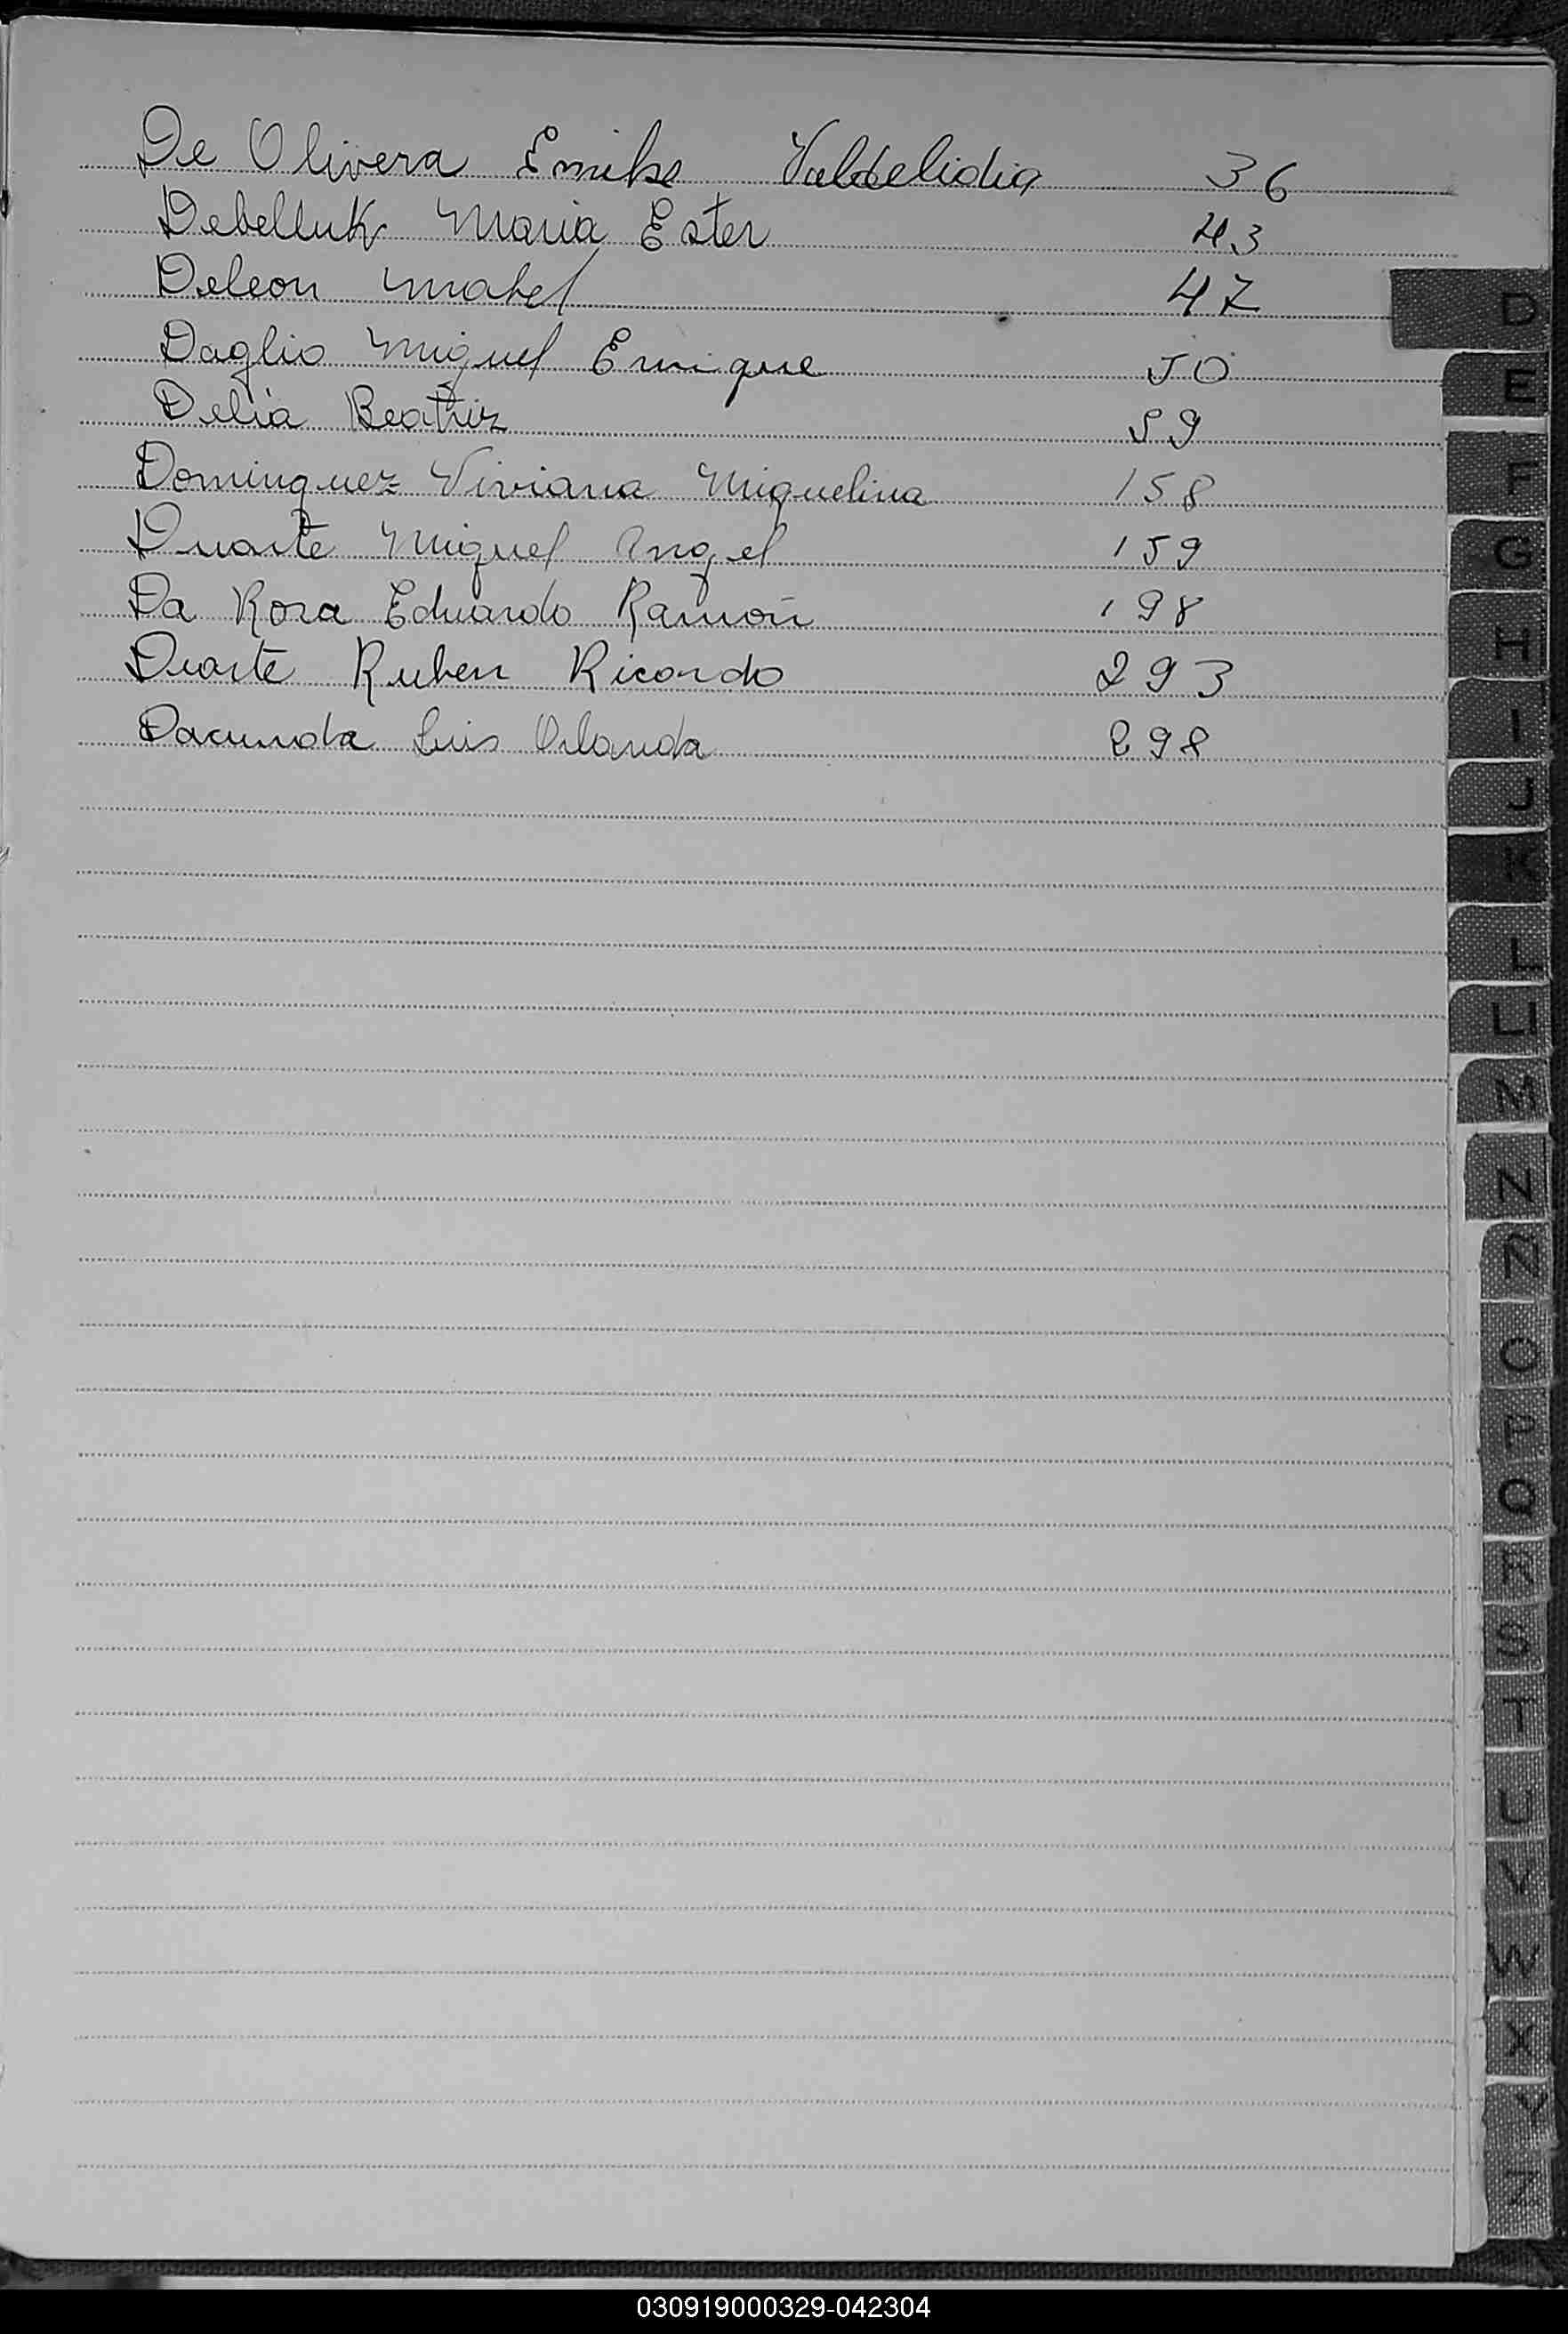 De Olivera Emilse Valdelidia 36
Debelluk Maria Ester 43
Deleon Mabel 47
Daglio Miguel Enrique 50
Delia Beatriz 59
Dominguez Viviana Miguelina 158
Duarte Miguel Angel 159
Da Rosa Eduardo Ramón 198
Duarte Ruben Ricardo 293
Dacunda Luis Orlanda 298
D
E
F
G
H
I
J
K
L
LL
M
N
Ñ
O
P
Q
R
S
T
U
V
W
X
Y
Z
030919000329-042304